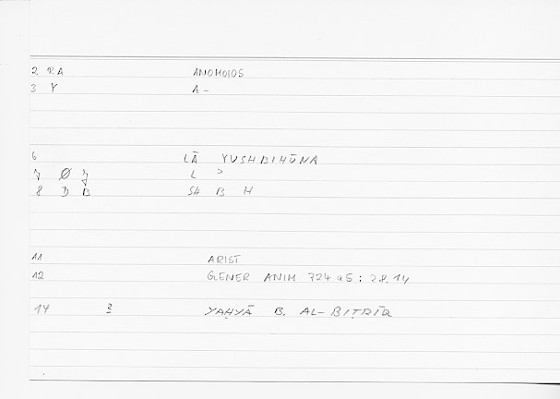 2 RA ANOMOIOS
3 Y A-
6 LĀ YUSHBIHŪNA
7 Ø 7 L ɔ
8 D B SH B H
11 ARIST
12 GENER ANIM 724 a5 : 28.14
14 2 YAḤYĀ B. AL-BIṬRĪQ